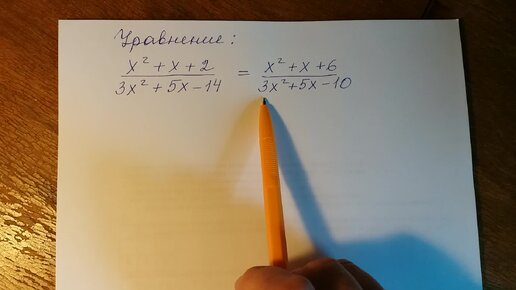 Уравнение:
x² + x + 2 / 3x² + 5x - 14 = x² + x + 6 / 3x² + 5x - 10